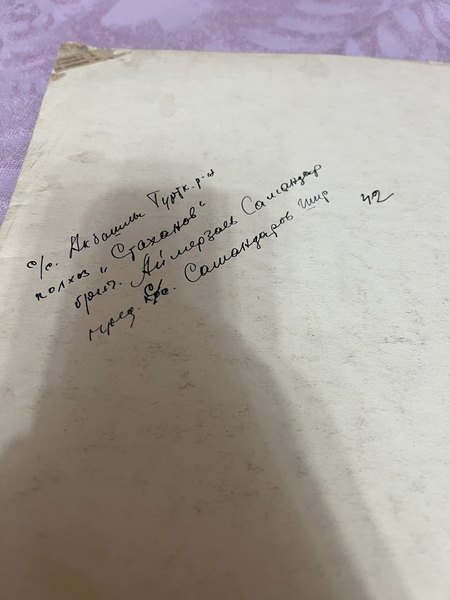 с/с. Акбашлы Турткр-н
колхоз "Стаханов"
бриг. Аймерзаев Самандар
пред. с/с. Самандаров Шир 42